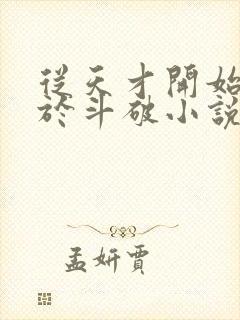 從天才開始
於斗破小說
孟妍賈